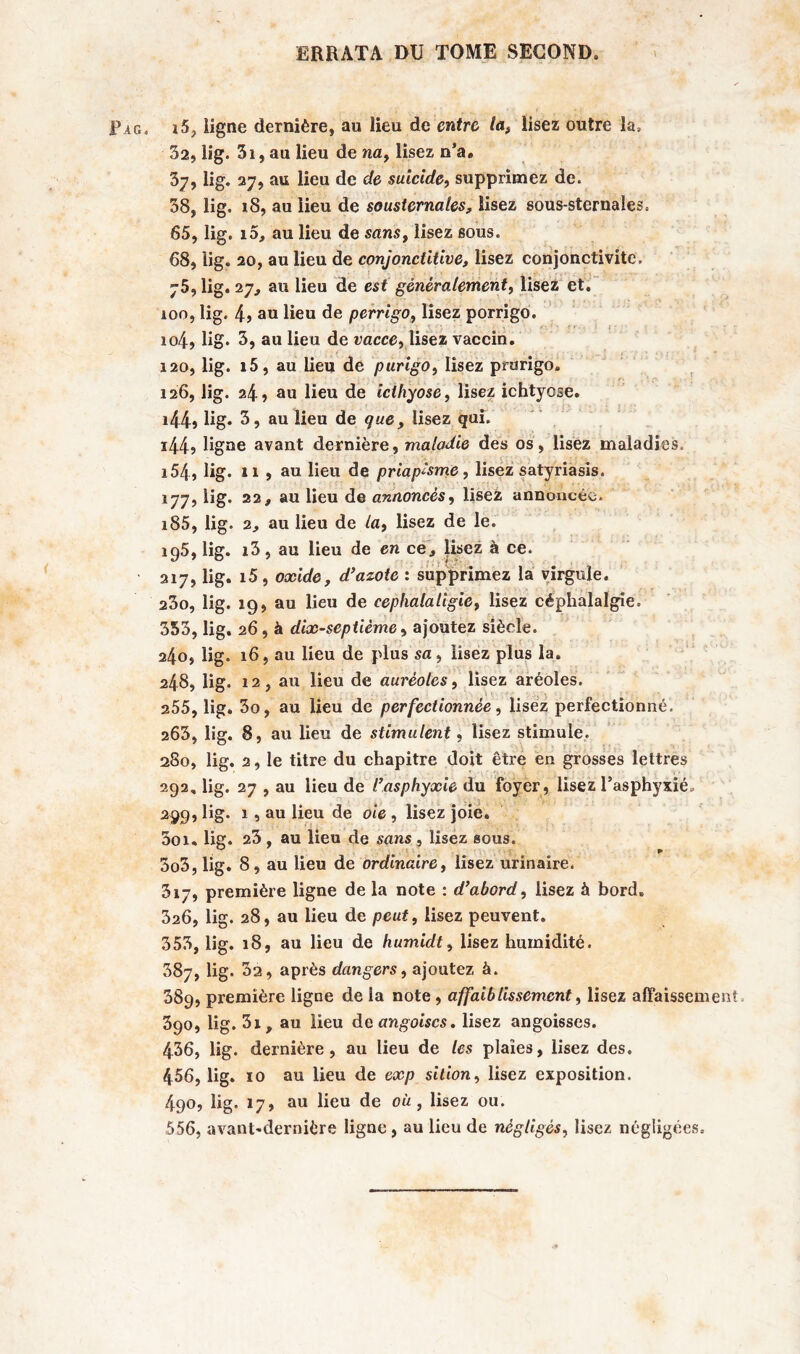 ERRATA DU TOME SECOND.
PAG. 15, ligne dernière, au lieu de entre la, lisez outre la.
32, lig. 31, au lieu de na, lisez n'a.
37, lig. 27, au lieu de de suicide, supprimez de.
38, lig. 18, au lieu de sousternales, lisez sous-sternales.
65, lig. 15, au lieu de sans, lisez sous.
68, lig. 20, au lieu de conjonctitive, lisez conjonctivite.
75, lig. 27, au lieu de est généralement, lisez et.
100, lig. 4, au lieu de perrigo, lisez porrigo.
104, lig. 3, au lieu de vacce, lisez vaccin.
120, lig. 15, au lieu de purigo, lisez prurigo.
126, lig. 24, au lieu de icthyose, lisez ichtyose.
144, lig. 3, au lieu de que, lisez qui.
144, ligne avant dernière, maladie des os, lisez maladies.
154, lig. 11, au lieu de priapisme, lisez satyriasis.
177, lig. 22, au lieu de annoncés, lisez annoncée.
185, lig. 2, au lieu de la, lisez de le.
195, lig. 13, au lieu de en ce, lisez à ce.
217, lig. 15, oxide, d'azote : supprimez la virgule.
230, lig. 19, au lieu de cephalaligie, lisez céphalalgie.
333, lig. 26, à dix-septième, ajoutez siècle.
240, lig. 16, au lieu de plus sa, lisez plus la.
248, lig. 12, au lieu de auréoles, lisez aréoles.
255, lig. 30, au lieu de perfectionnée, lisez perfectionné.
263, lig. 8, au lieu de stimulent, lisez stimule.
280, lig. 2, le titre du chapitre doit être en grosses lettres
292, lig. 27, au lieu de l'asphyxie du foyer, lisez l'asphyxié.
299, lig. 1, au lieu de oie, lisez joie.
301, lig. 23, au lieu de sans, lisez sous.
303, lig. 8, au lieu de ordinaire, lisez urinaire.
317, première ligne de la note : d'abord, lisez à bord.
326, lig. 28, au lieu de peut, lisez peuvent.
353, lig. 18, au lieu de humidt, lisez humidité.
387, lig. 32, après dangers, ajoutez à.
389, première ligne de la note, affaiblissement, lisez affaissement.
390, lig. 31, au lieu de angoises. lisez angoisses.
436, lig. dernière, au lieu de les plaies, lisez des.
456, lig. 10 au lieu de exp sition, lisez exposition.
490, lig. 17, au lieu de où, lisez ou.
556, avant-dernière ligne, au lieu de négligés, lisez négligées.